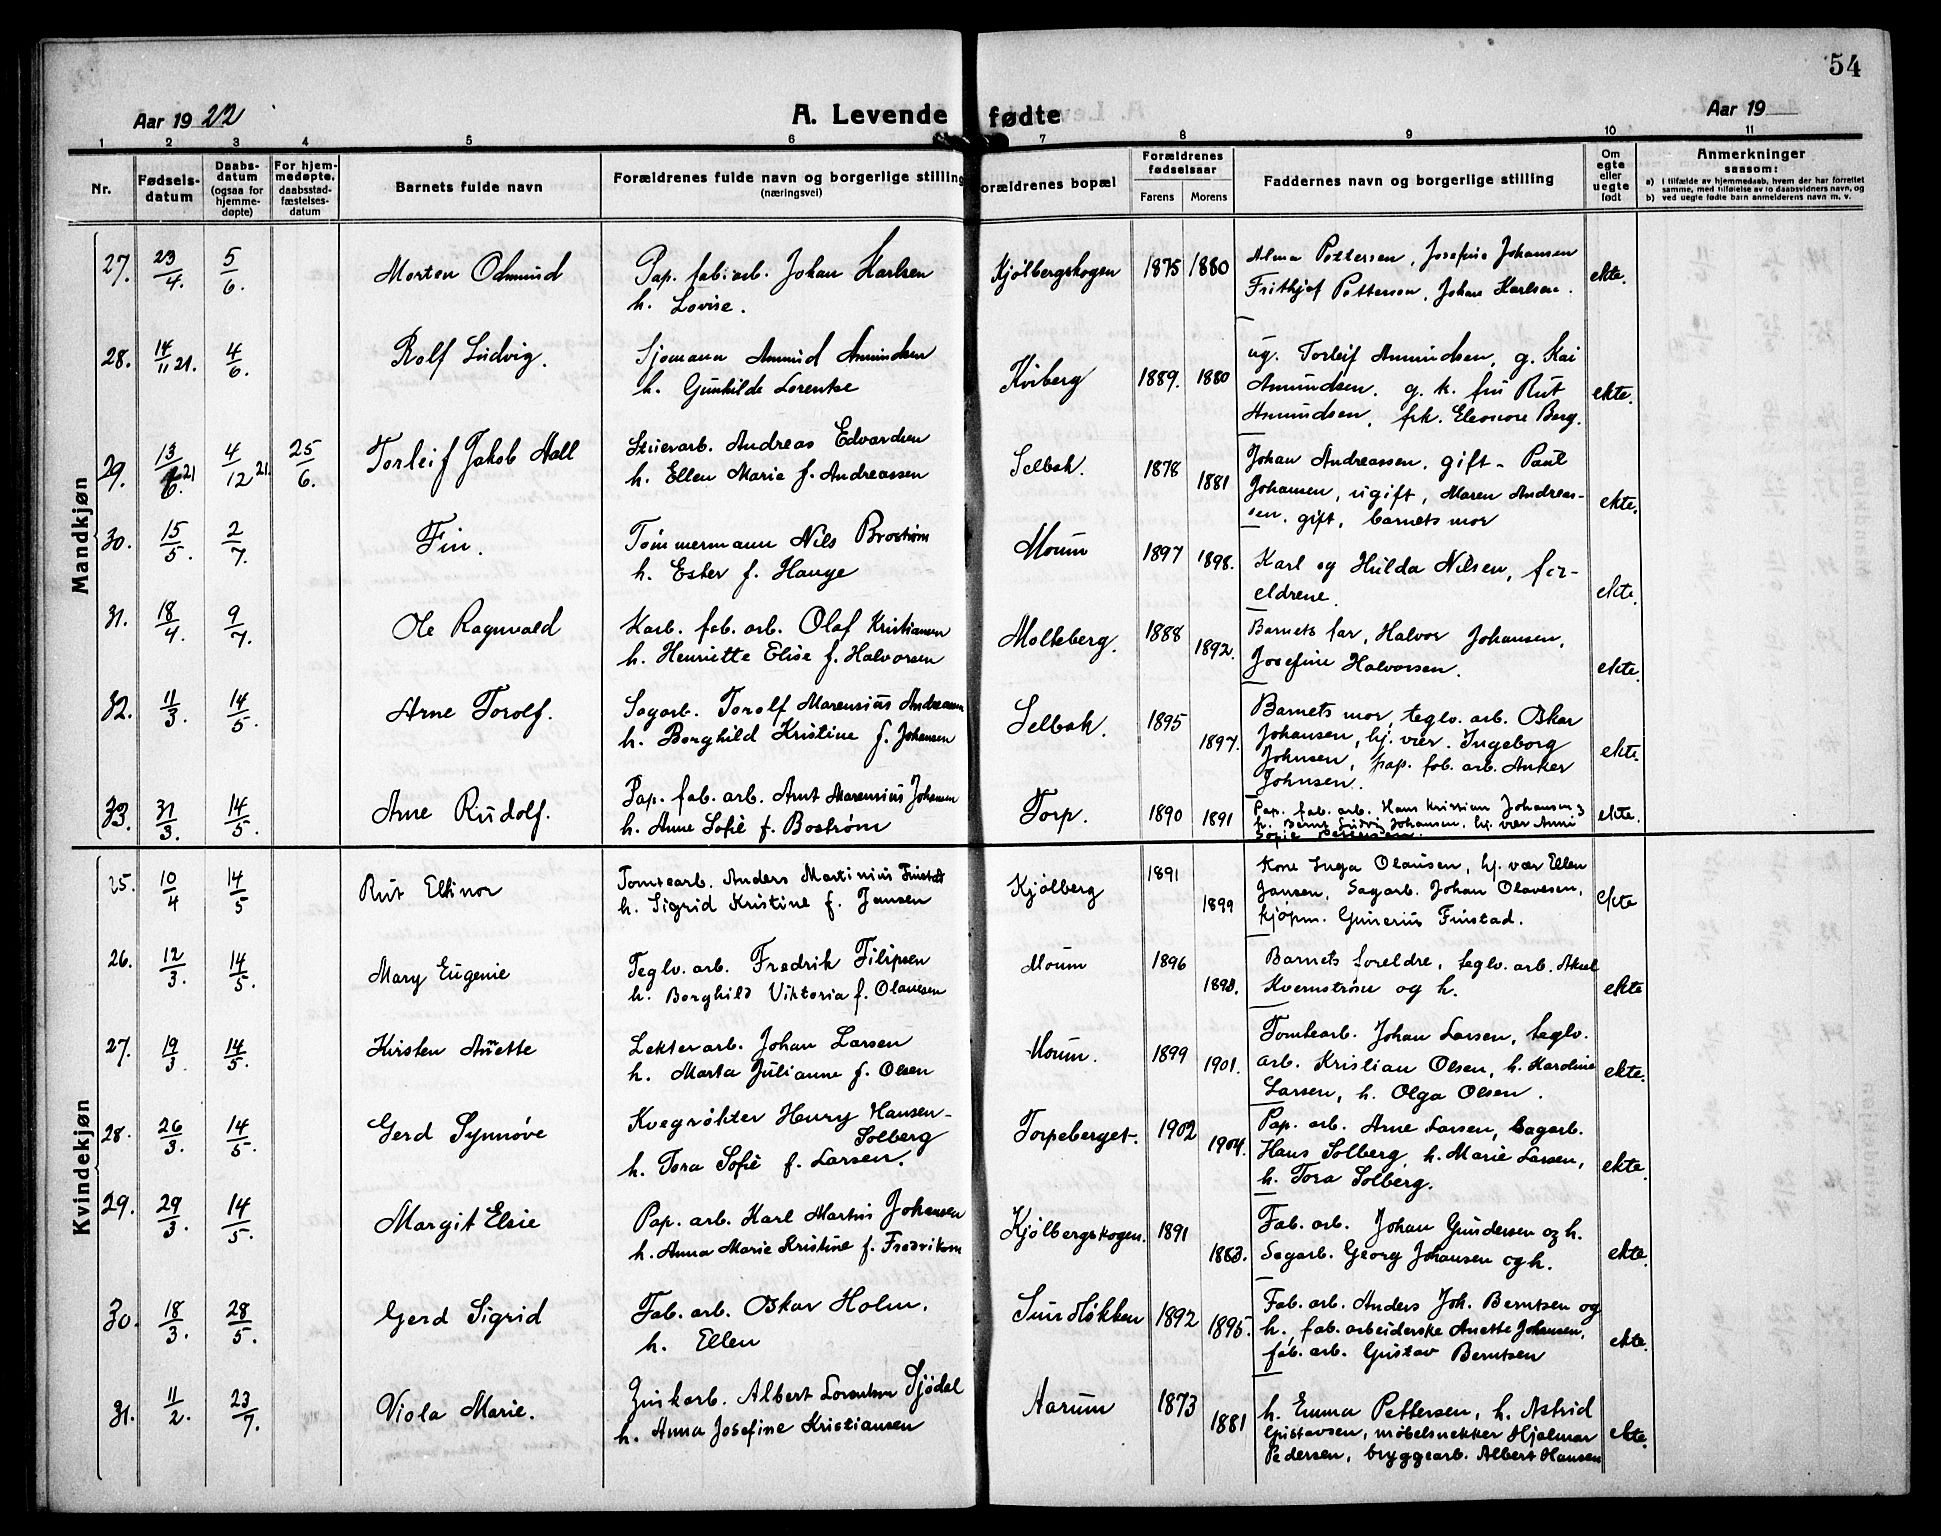 54
Aar 1922
A. Levende fødte
Aar 19
1 2 3 4 5 6 7 8 9 10 11
Nr.
Fødsels-
datum
Daabs-
datum
(ogsaa for
hjemme-
døpte)
For hjem-
medøpte.
daabsstad-
fæstelses-
datum
Barnets fulde navn
Forældrenes fulde navn og borgerlige stilling
(næringsvei)
orældrenes bopæl
Forældrenes
fødselsaar
Farens Morens
Faddernes navn og borgerlige stilling
Om
egte
eller
uegte
født
Anmerkninger
saasom:
a) i tilfælde av hjemmedaab, hvem der har forrettet
samme, med tilføielse av to daabsvidners navn, og
b) ved uegte fødte barn anmelderens navn m. v.
Mandkjøn
27. 23/4. 5/6. Morten Odmund
Pap. fab. arb. Johan Karlsen
h. Lovise.
Kjølbergskogen 1875 1880
Alma Pettersen, Josefine Johansen
Frithjof Pettersen, Johan Karlsen.
ekte.
28. 14/11 21. 4/6. Rolf Ludvig.
Sjømann Amund Amundsen
h. Gunhilde Lorentse
Kviberg 1889. 1880
ug. Torleif Amundsen, g. Kai
Amundsen. g. k. fru Rut
Amundsen, frk. Eleonore Berg.
ekte.
29. 13/6. 21 4/12 21. 25/6. Torleif Jakob Hall
Stuerarb. Andreas Edvardsen
h. Ellen Marie f. Andreassen
Selbak. 1878 1881
Johan Andreassen, gift - Paul
Johansen, ugift, Maren Andreas-
sen. gift, barnets mor
ekte.
30. 15/5. 2/7. Fin.
Tømmermann Nils Brostrøm
h. Ester f. Hauge
Moum 1897 1898.
Karl og Hulda Nilsen, for-
eldrene.
ekte.
31. 18/4. 9/7. Ole Ragnvald
Karb. fab. arb. Olaf Kristiansen
h. Henriette Elise f. Halvorsen
Molteberg. 1888 1892.
Barnets far, Halvor Johansen,
Josefine Halvorsen.
ekte.
32. 11/3. 14/5. Arne Torolf.
Sagarb. Torolf Marensius Andreassen
h. Borghild Kristine f. Johansen
Selbak. 1895 1897.
Barnets mor, teglv. arb. Oskar
Johansen, hj. vær. Ingeborg
Johnsen, pap. fob. arb. Anker
Johnsen.
ekte.
33. 31/3. 14/5. Arne Rudolf.
Pap. fab. arb. Arnt Marensius Johansen
h. Anne Sofie f. Bostrøm
Torp. 1890 1891
Pap. fab. arb. Hans Kristian Johansen,
h. Ludvig Johansen, hj. vær Anni
Sofie
ekte.
Kvindekjøn
25. 10/4 14/5 Rut Ellinor
Tomtearb. Anders Martinius Finstad
h. Sigrid Kristine f. Jansen
Kjølberg 1891 1899
Kone Inga Olausen, hj. vær Ellen
Jansen, Sagarb. Johan Olavesen,
kjøpm. Gunerius Finstad.
ekte
26. 12/3. 14/5. Mary Eugenie
Teglv. arb. Fredrik Filipsen
h. Borghild Viktoria f. Olausen
Moum 1896 1898.
Barnets foreldre, teglv. arb. Aksel
Kvernstrøm og h.
ekte
27. 19/3 14/5. Kirsten Anette
Lekterarb. Johan Larsen
h. Marta Julianne f. Olsen
Moum. 1899 1901.
Tomtearb. Johan Larsen, teglv.
arb. Kristian Olsen, h. Kardine
Larsen, h. Olga Olsen.
ekte.
28. 26/3. 14/5. Gerd Synnøve
Kvegrøkter Henry Hansen-
Solberg
h. Tora Sofie f. Larsen.
Torpeberget. 1902 1904.
Pap. arb. Arne Larsen, Sagarb.
Hans Solberg, h. Marie Larsen,
h. Tora Solberg.
ekte.
29. 29/3. 14/5. Margit Elsie
Pap. arb. Karl Martin Johansen
h. Anna Marie Kristine f. Fredriksen
Kjølbergskogen. 1891 1883.
Fab. arb. Johan Gundersen og h.
Sagarb. Georg Johansen og h.
ekte
30. 18/3. 28/5. Gerd Sigrid
Fab. arb. Oskar Holm.
h. Ellen
Sundløkken 1892 1895.
Fab. arb. Anders Joh. Berntsen og
h., fab. arbeiderske Anette Johansen,
fab. arb. Gustav Berntsen
ekte.
31. 11/2. 23/7. Viola Marie.
Zinkarb. Albert Lorentsen Sjødal
h. Anna Josefine Kristiansen
Aarum 1873 1881
h. Emma Pettersen, h. Astrid
Gustavsen, møbelsnekker Hjalmar
Pedersen, bryggearb. Albert Hansen
ekte.